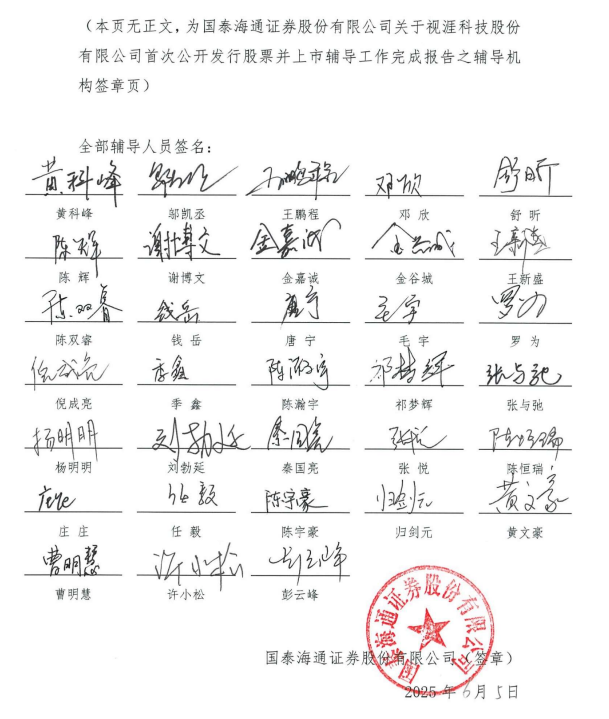 （本页无正文，为国泰海通证券股份有限公司关于视涯科技股份
有限公司首次公开发行股票并上市辅导工作完成报告之辅导机
构签章页）
全部辅导人员签名：
黄科峰 邬凯丞 王鹏程 邓欣 舒昕
黄科峰 邬凯丞 王鹏程 邓 欣 舒 昕
陈辉 谢博文 金嘉诚 金谷城 王新盛
陈 辉 谢博文 金嘉诚 金谷城 王新盛
陈双睿 钱岳 唐宁 毛宇 罗为
陈双睿 钱 岳 唐 宁 毛 宇 罗 为
倪成亮 季鑫 陈瀚宇 祁梦辉 张与弛
倪成亮 季 鑫 陈瀚宇 祁梦辉 张与弛
杨明明 刘勃延 秦国亮 张悦 陈恒瑞
杨明明 刘勃延 秦国亮 张 悦 陈恒瑞
任毅 陈宇豪 归剑元 黄文豪
庄 庄 任 毅 陈宇豪 归剑元 黄文豪
曹明慧 许小松 彭云峰
曹明慧 许小松 彭云峰
国泰海通证券股份有限公司
国泰海通证券股份有限公司（签章）
2025年6月5日